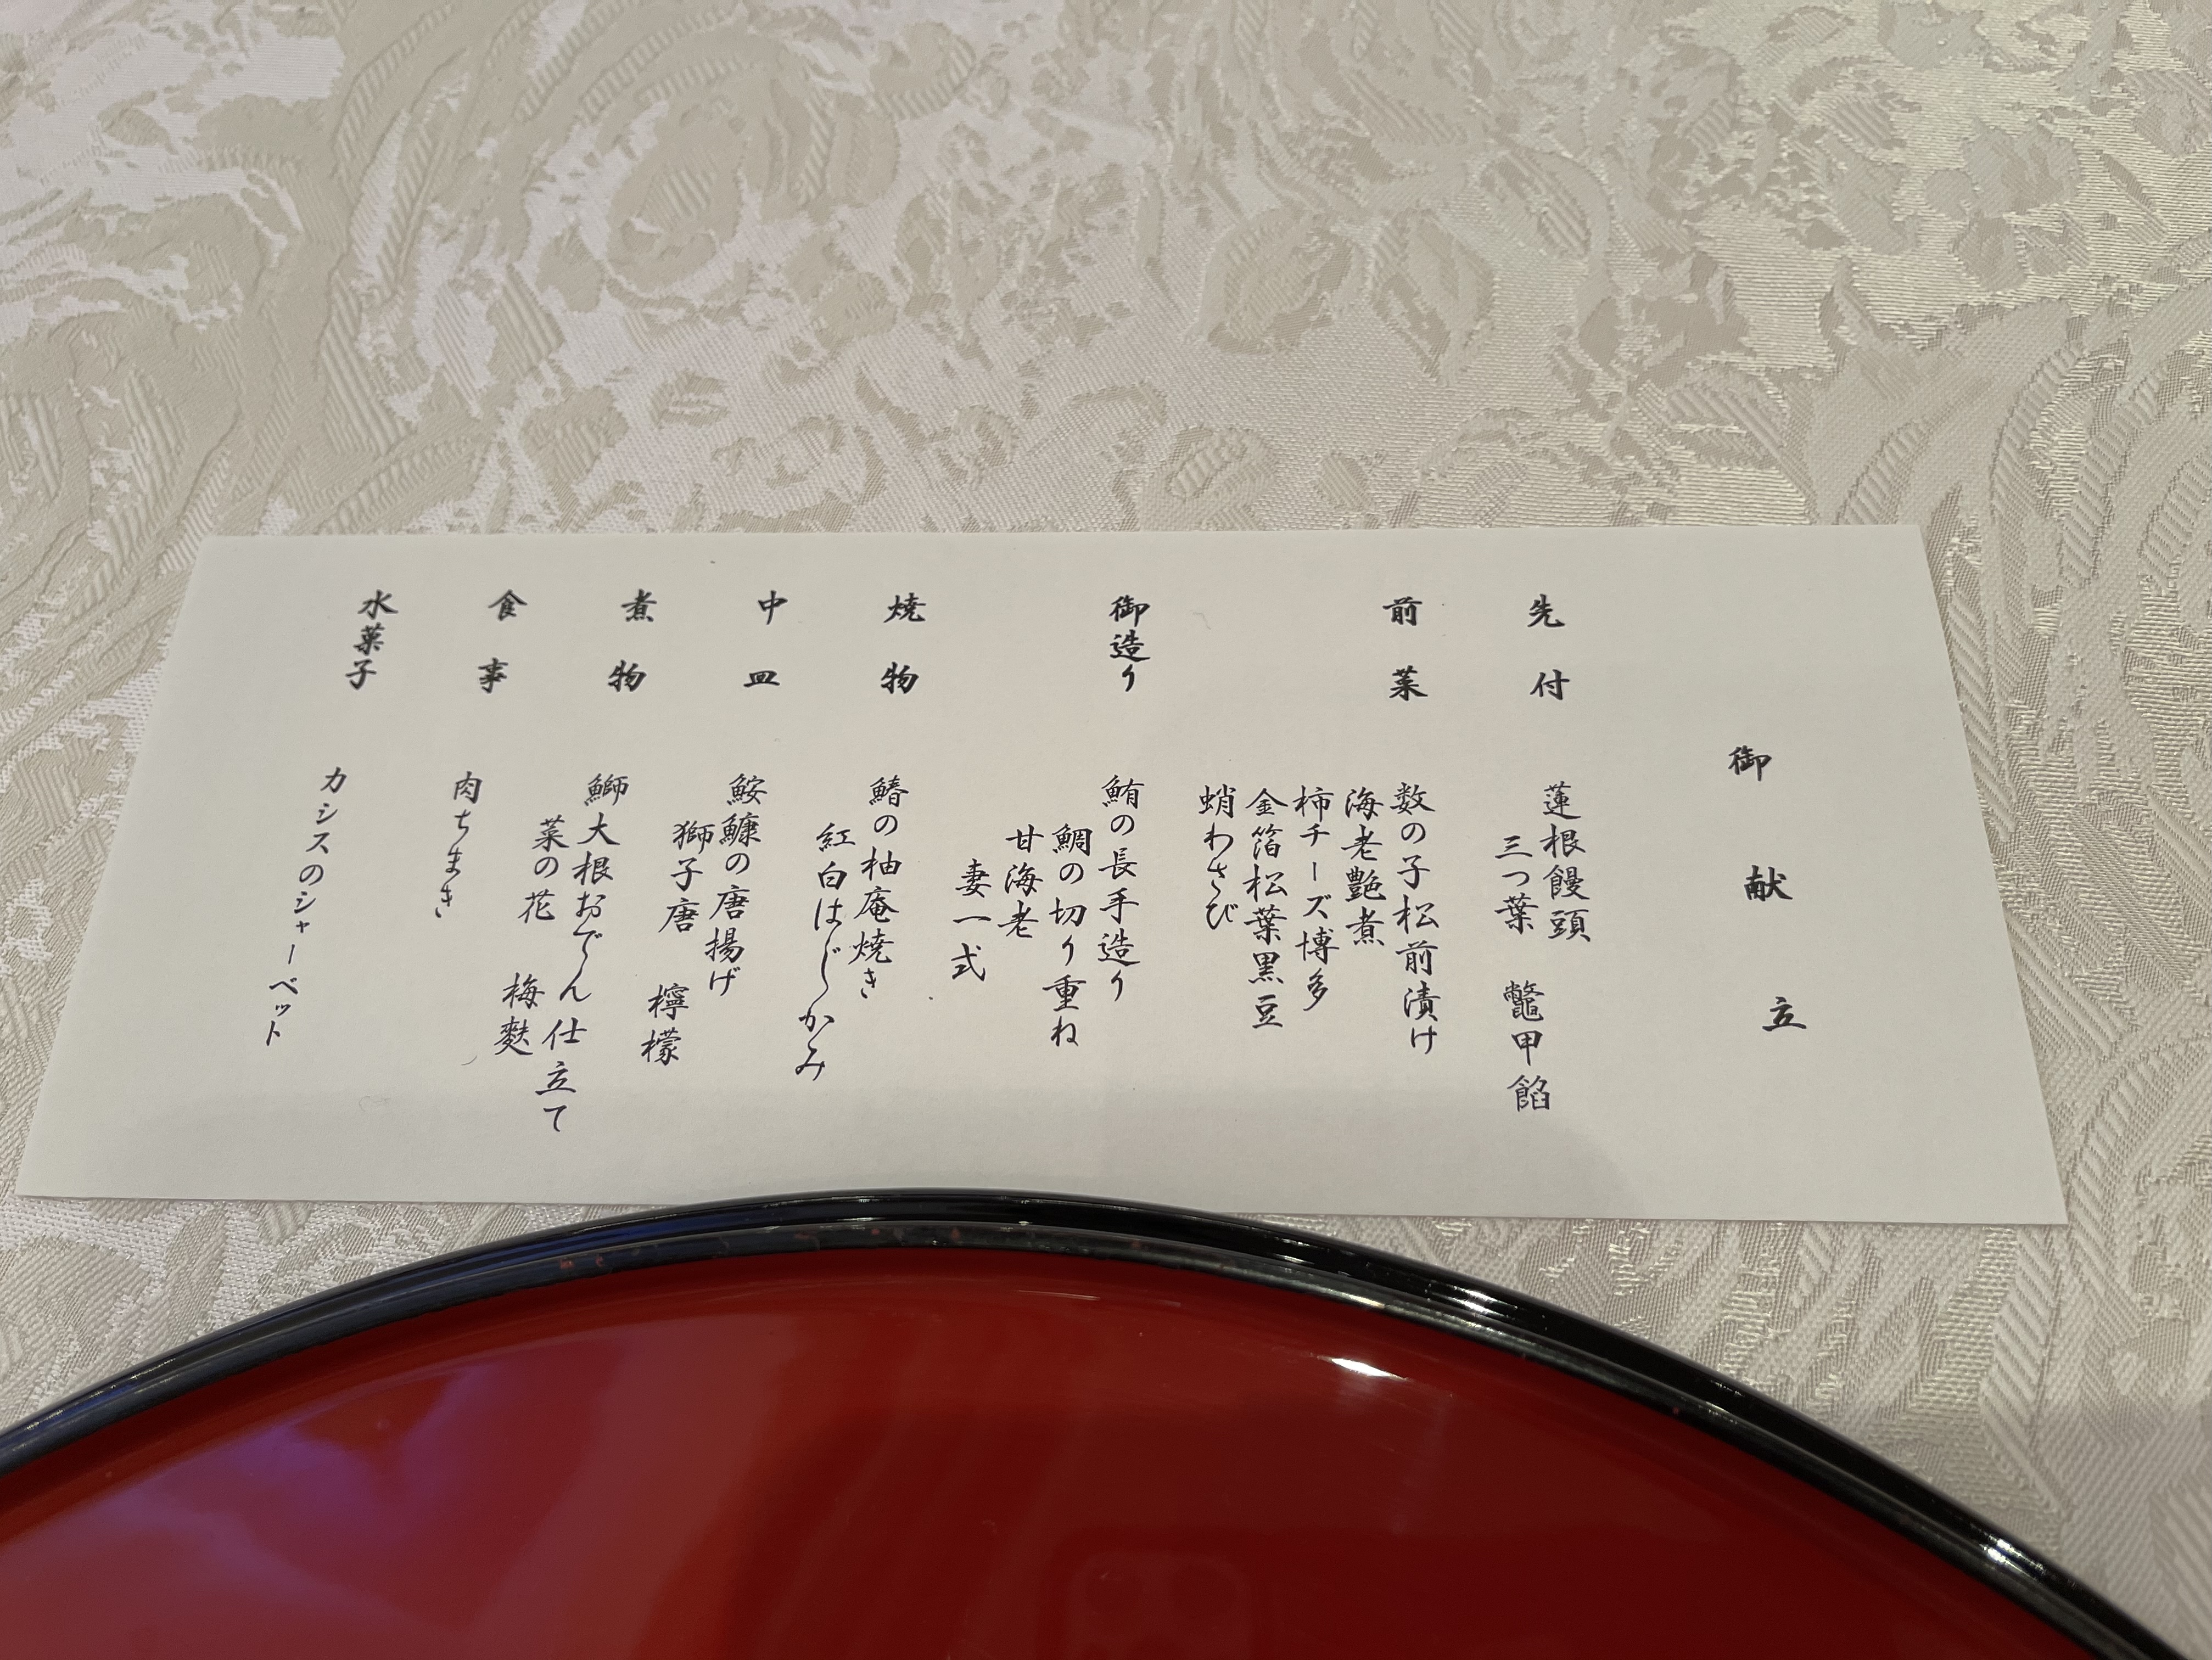 御献立
先付
蓮根饅頭
三つ葉 鼈甲餡
前菜
数の子松前漬け
海老艶煮
柿チーズ博多
金箔松葉黒豆
蛸わさび
御造り
鮪の長手造り
鯛の切り重ね
甘海老
妻一式
焼物
鰆の柚庵焼き
紅白はじかみ
中皿
鮟鱇の唐揚げ
獅子唐 檸檬
煮物
鰤大根おでん仕立て
菜の花 梅麩
食事
肉ちまき
水菓子
カシスのシャーベット